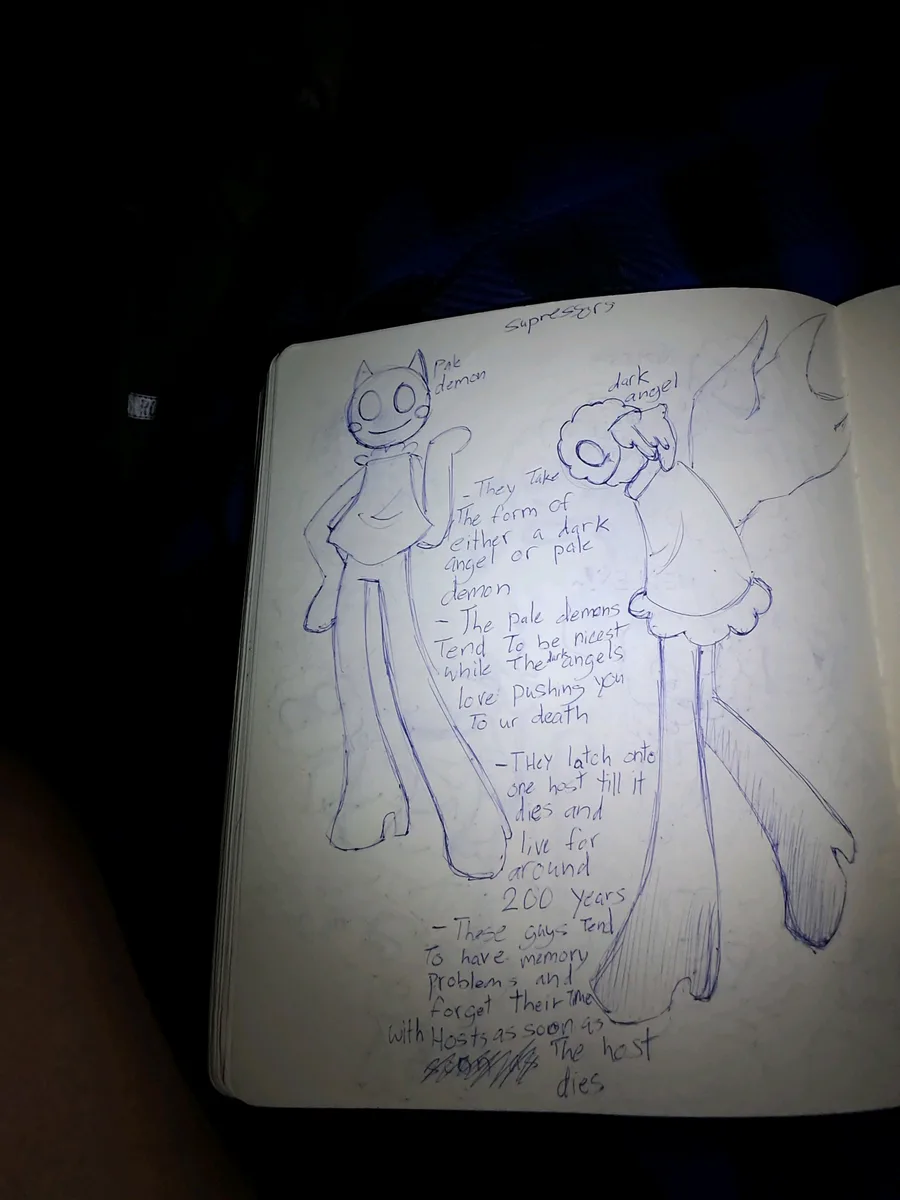 supressors
Pale
demon
dark
angel
- They Take
The form of
either a dark
angel or pale
demon
- The pale demons
Tend To be nicest
while The dark angels
love pushing you
To ur death
- THey latch onto
one host till it
dies and
live for
around
200 years
- These guys Tend
To have memory
problems and
forget their Time
with Hosts as soon as
The host
dies